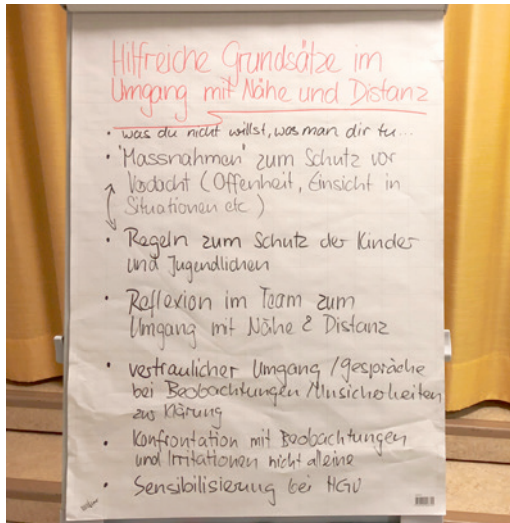 Hilfreiche Grundsätze im
Umgang mit Nähe und Distanz
• was du nicht willst, was man dir tu...
• 'Massnahmen' zum Schutz vor
Verdacht (Offenheit, Einsicht in
Situationen etc.)
• Regeln zum Schutz der Kinder
und Jugendlichen
• Reflexion im Team zum
Umgang mit Nähe & Distanz
• vertraulicher Umgang / gespräche
bei Beobachtungen / Unsicherheiten
zur Klärung
• Konfrontation mit Beobachtungen
und Irritationen nicht alleine
• Sensibilisierung bei MGV